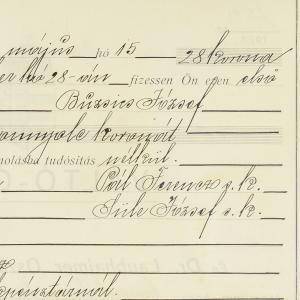 május hó 15 28 korona
er hó 28-án fizessen Ön ezen első
Buzsics József
annyolc koronát
molásba tudósítás nélkül.
Pál Ferencz s. k.
Süle József s. k.
pénztárnál.